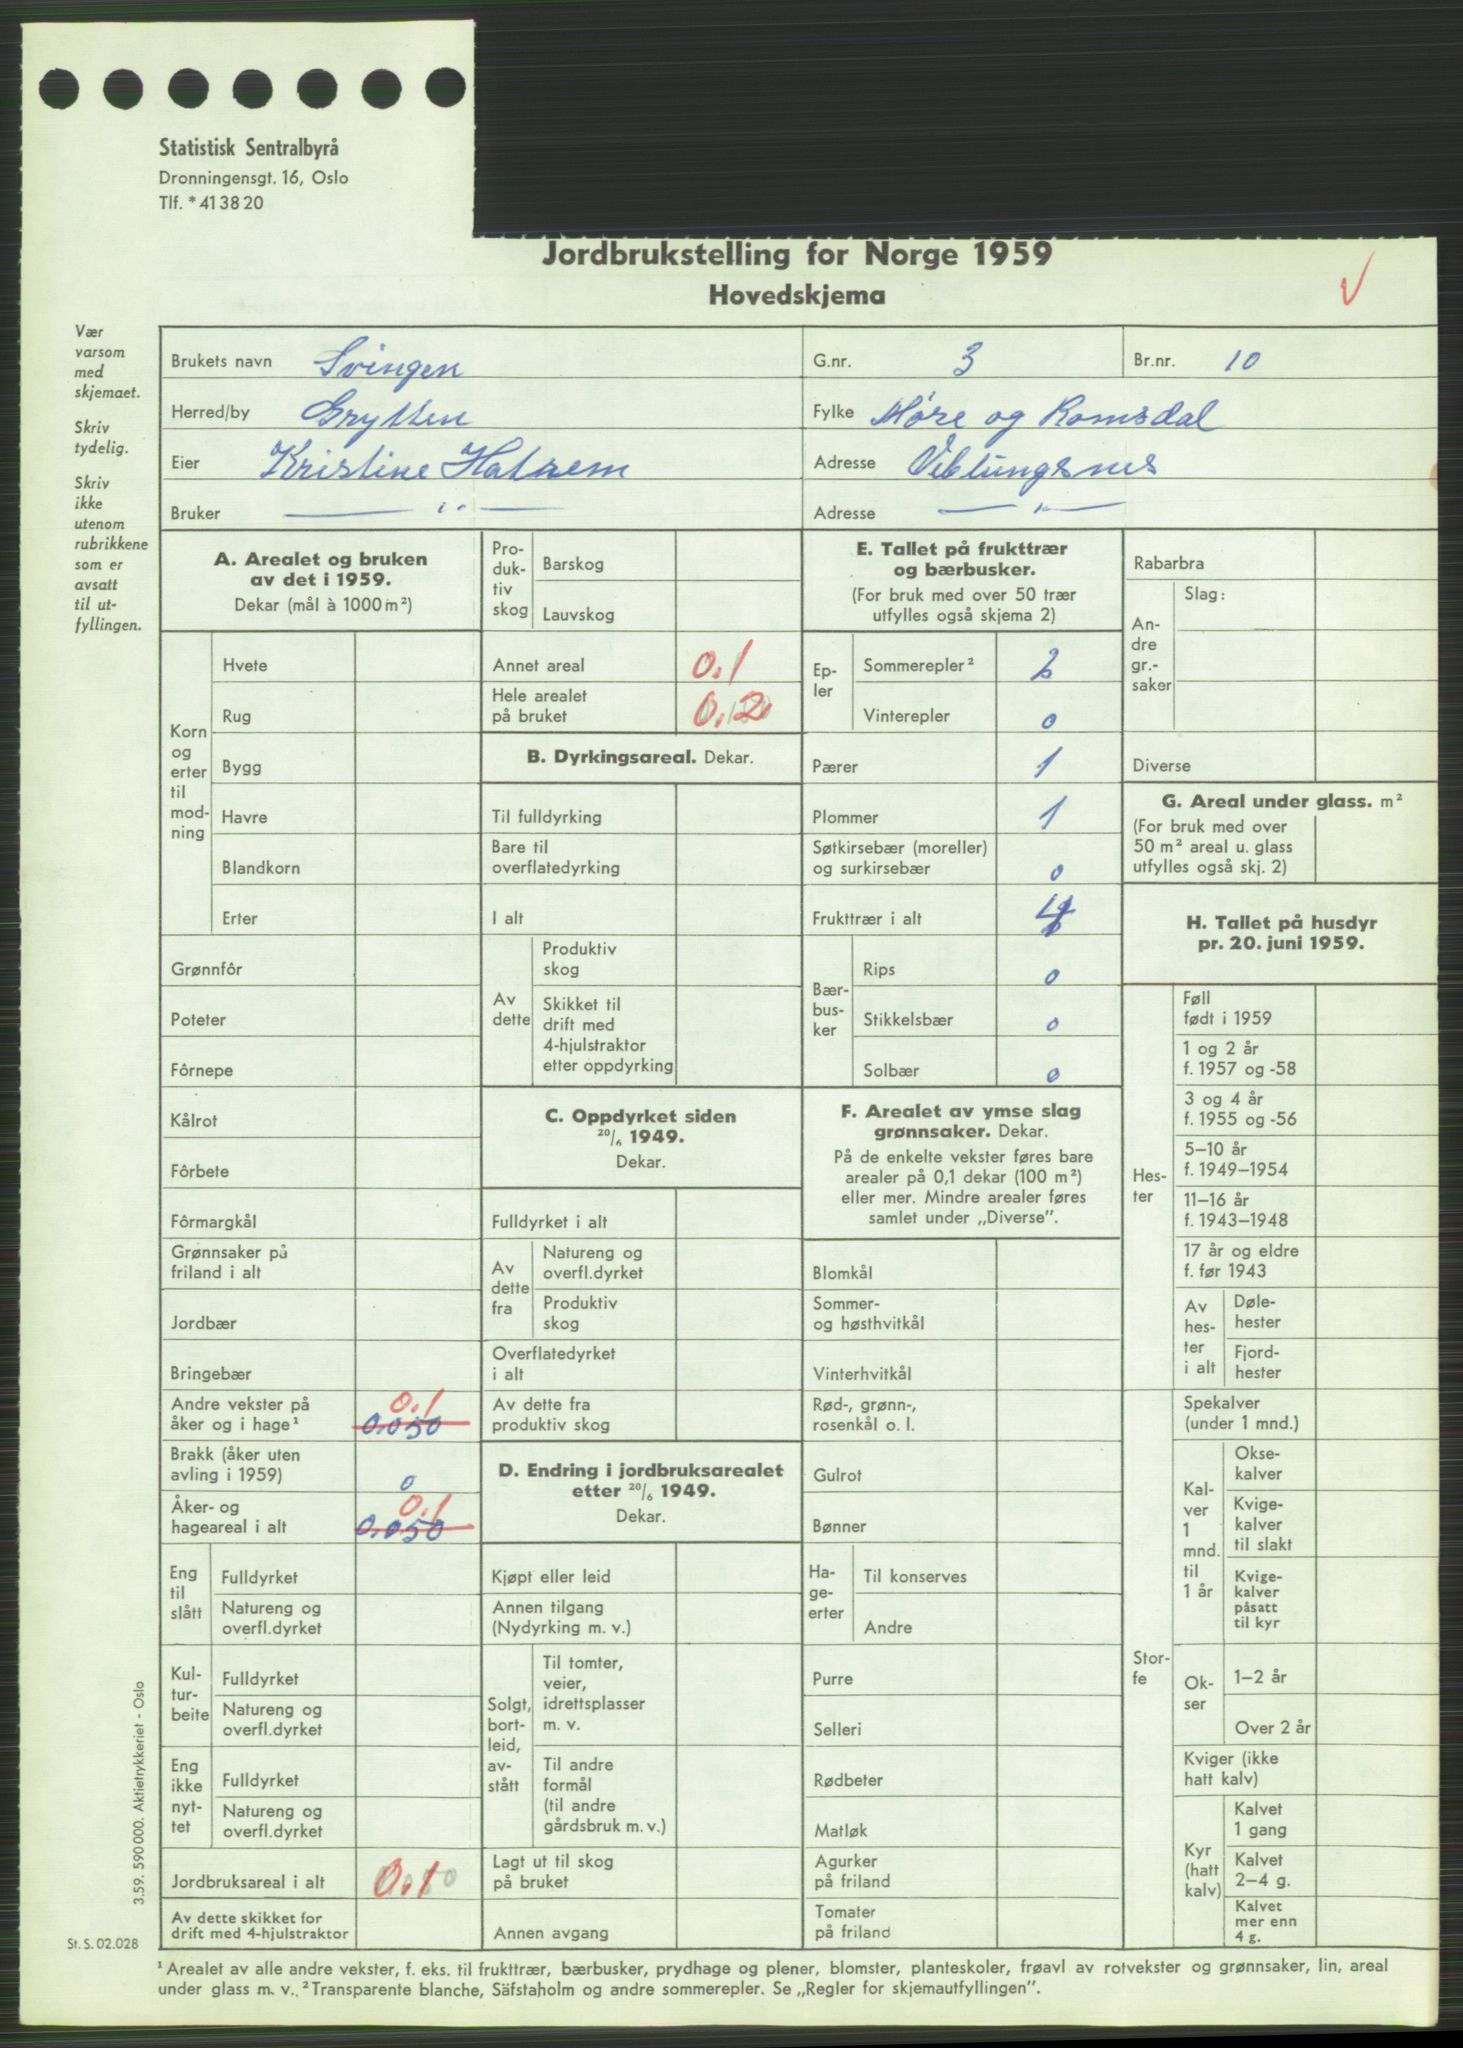 Statistisk Sentralbyrå
Dronningensgt. 16, Oslo
Tlf. * 41 38 20
Jordbrukstelling for Norge 1959
Hovedskjema
Vær
varsom
med
skjemaet.
Skriv
tydelig.
Skriv
ikke
utenom
rubrikkene
som er
avsatt
til ut-
fyllingen.
Brukets navn Svingen G.nr. 3 Br.nr. 10
Herred/by Grytten Fylke Møre og Romsdal
Eier Kristine Halsem Adresse Veblungsnes
Bruker — " — Adresse — " —
A. Arealet og bruken
av det i 1959.
Dekar (mål à 1000 m²)
Korn
og
erter
til
mod-
ning
Hvete
Rug
Bygg
Havre
Blandkorn
Erter
Grønnfôr
Poteter
Fôrnepe
Kålrot
Fôrbete
Fôrmargkål
Grønnsaker på
friland i alt
Jordbær
Bringebær
Andre vekster på 0.1
åker og i hage¹ 0.050
Brakk (åker uten
avling i 1959) 0
Åker- og 0.1
hageareal i alt 0.050
Eng
til
slått
Fulldyrket
Natureng og
overfl.dyrket
Kul-
tur-
beite
Fulldyrket
Natureng og
overfl.dyrket
Eng
ikke
nyt-
tet
Fulldyrket
Natureng og
overfl.dyrket
Jordbruksareal i alt 0.1
Av dette skikket for
drift med 4-hjulstraktor
Pro-
duk-
tiv
skog
Barskog
Lauvskog
Annet areal 0.1
Hele arealet
på bruket 0.2
B. Dyrkingsareal. Dekar.
Til fulldyrking
Bare til
overflatedyrking
I alt
Av
dette
Produktiv
skog
Skikket til
drift med
4-hjulstraktor
etter oppdyrking
C. Oppdyrket siden
20/6 1949.
Dekar.
Fulldyrket i alt
Av
dette
fra
Natureng og
overfl.dyrket
Produktiv
skog
Overflatedyrket
i alt
Av dette fra
produktiv skog
D. Endring i jordbruksarealet
etter 20/6 1949.
Dekar.
Kjøpt eller leid
Annen tilgang
(Nydyrking m. v.)
Solgt,
bort-
leid,
av-
stått
Til tomter,
veier,
idrettsplasser
m. v.
Til andre
formål
(til andre
gårdsbruk m. v.)
Lagt ut til skog
på bruket
Annen avgang
E. Tallet på frukttrær
og bærbusker.
(For bruk med over 50 trær
utfylles også skjema 2)
Ep-
ler
Sommerepler² 2
Vinterepler 0
Pærer 1
Plommer 1
Søtkirsebær (moreller)
og surkirsebær 0
Frukttrær i alt 4
Bær-
bus-
ker
Rips 0
Stikkelsbær 0
Solbær 0
F. Arealet av ymse slag
grønnsaker. Dekar.
På de enkelte vekster føres bare
arealer på 0,1 dekar (100 m²)
eller mer. Mindre arealer føres
samlet under „Diverse”.
Blomkål
Sommer-
og høsthvitkål
Vinterhvitkål
Rød-, grønn-,
rosenkål o. l.
Gulrot
Bønner
Ha-
ge-
erter
Til konserves
Andre
Purre
Selleri
Rødbeter
Matløk
Agurker
på friland
Tomater
på friland
Rabarbra
An-
dre
gr.-
saker
Slag:
Diverse
G. Areal under glass. m²
(For bruk med over
50 m² areal u. glass
utfylles også skj. 2)
H. Tallet på husdyr
pr. 20. juni 1959.
Hes-
ter
Føll
født i 1959
1 og 2 år
f. 1957 og -58
3 og 4 år
f. 1955 og -56
5–10 år
f. 1949–1954
11–16 år
f. 1943–1948
17 år og eldre
f. før 1943
Av
hes-
ter
i alt
Døle-
hester
Fjord-
hester
Stor-
fe
Spekalver
(under 1 mnd.)
Kal-
ver
1
mnd.
til
1 år
Okse-
kalver
Kvige-
kalver
til slakt
Kvige-
kalver
påsatt
til kyr
Ok-
ser
1–2 år
Over 2 år
Kviger (ikke
hatt kalv)
Kyr
(hatt
kalv)
Kalvet
1 gang
Kalvet
2–4 g.
Kalvet
mer enn
4 g.
3.59. 590 000. Aktietrykkeriet - Oslo
St. S. 02.028
¹ Arealet av alle andre vekster, f. eks. til frukttrær, bærbusker, prydhage og plener, blomster, planteskoler, frøavl av rotvekster og grønnsaker, lin, areal
under glass m. v.. ² Transparente blanche, Säfstaholm og andre sommerepler. Se „Regler for skjemautfyllingen”.